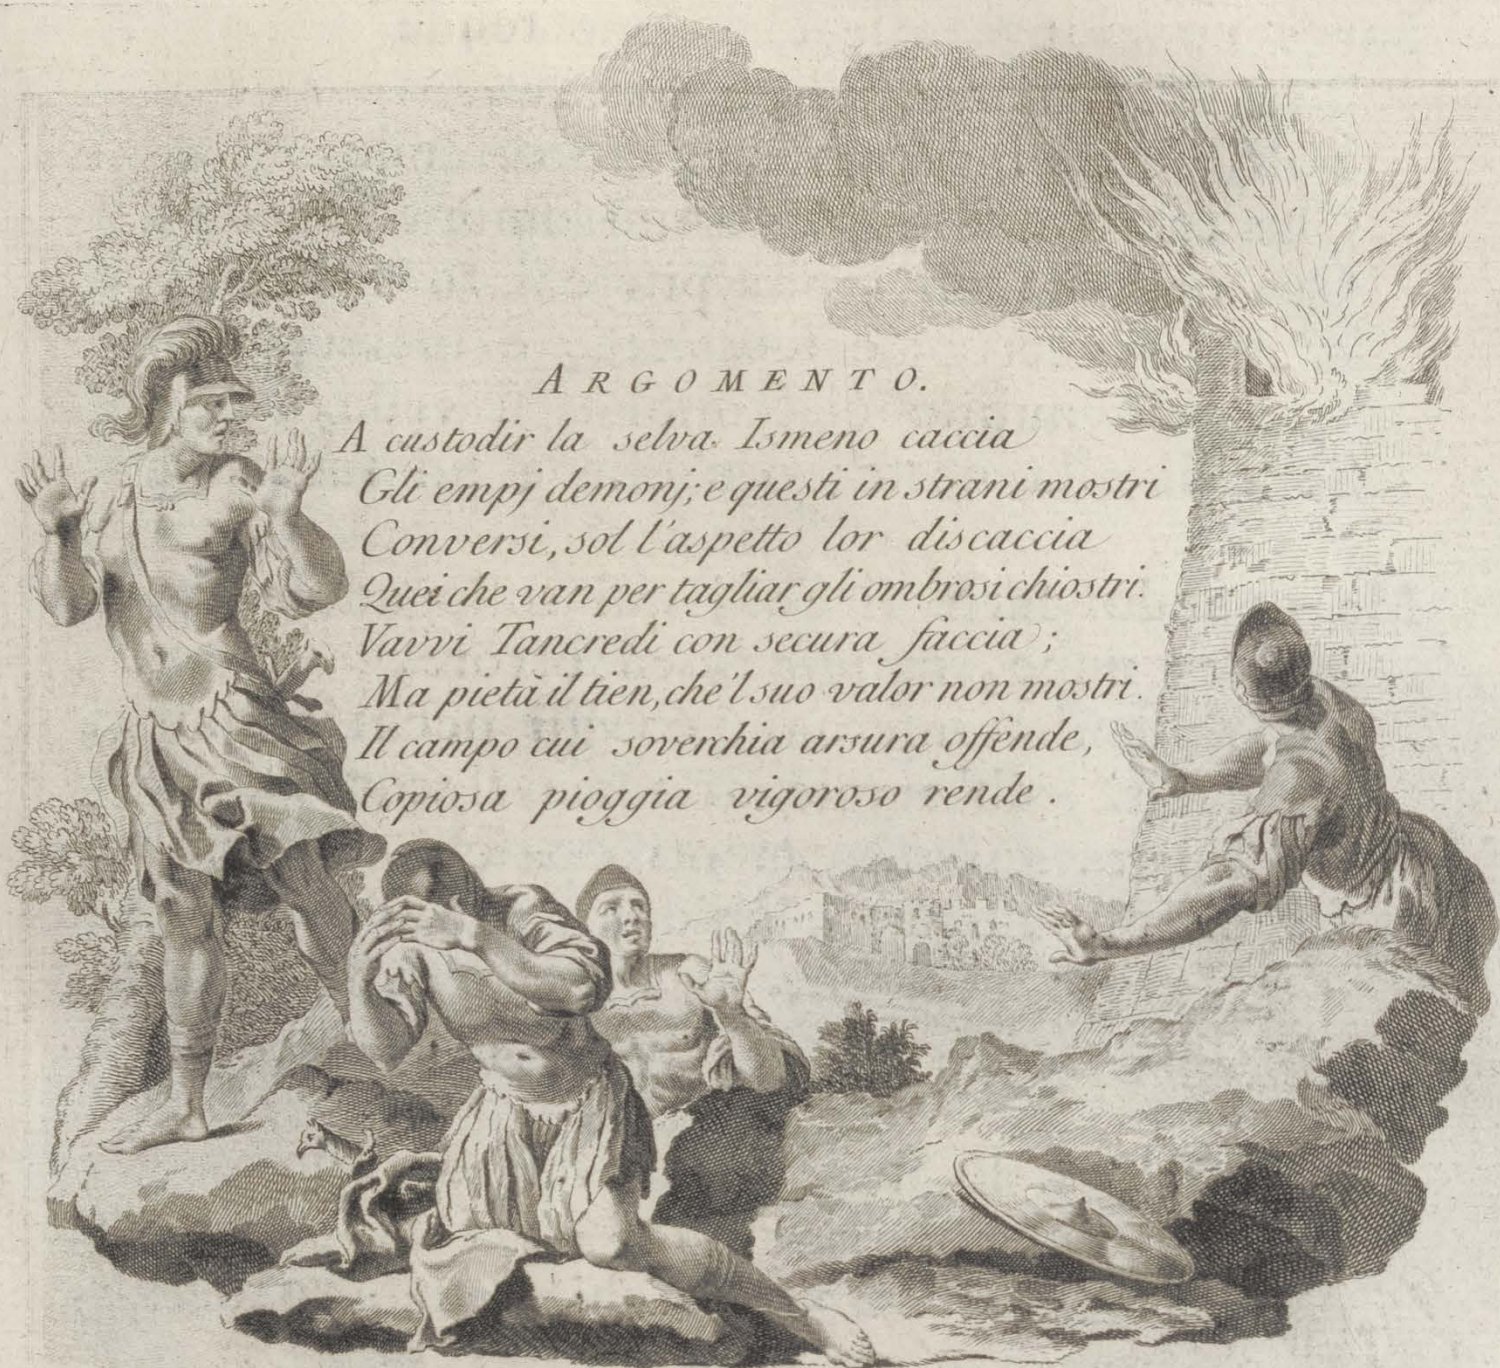 ARGOMENTO.
A custodir la selva Ismeno caccia
Gli empj demonj; e questi in strani mostri
Conversi, sol l'aspetto lor discaccia
Quei che van per tagliar gli ombrosi chiostri.
Vavvi Tancredi con secura faccia;
Ma pietà il tien, che'l suo valor non mostri.
Il campo cui soverchia arsura offende,
Copiosa pioggia vigoroso rende.